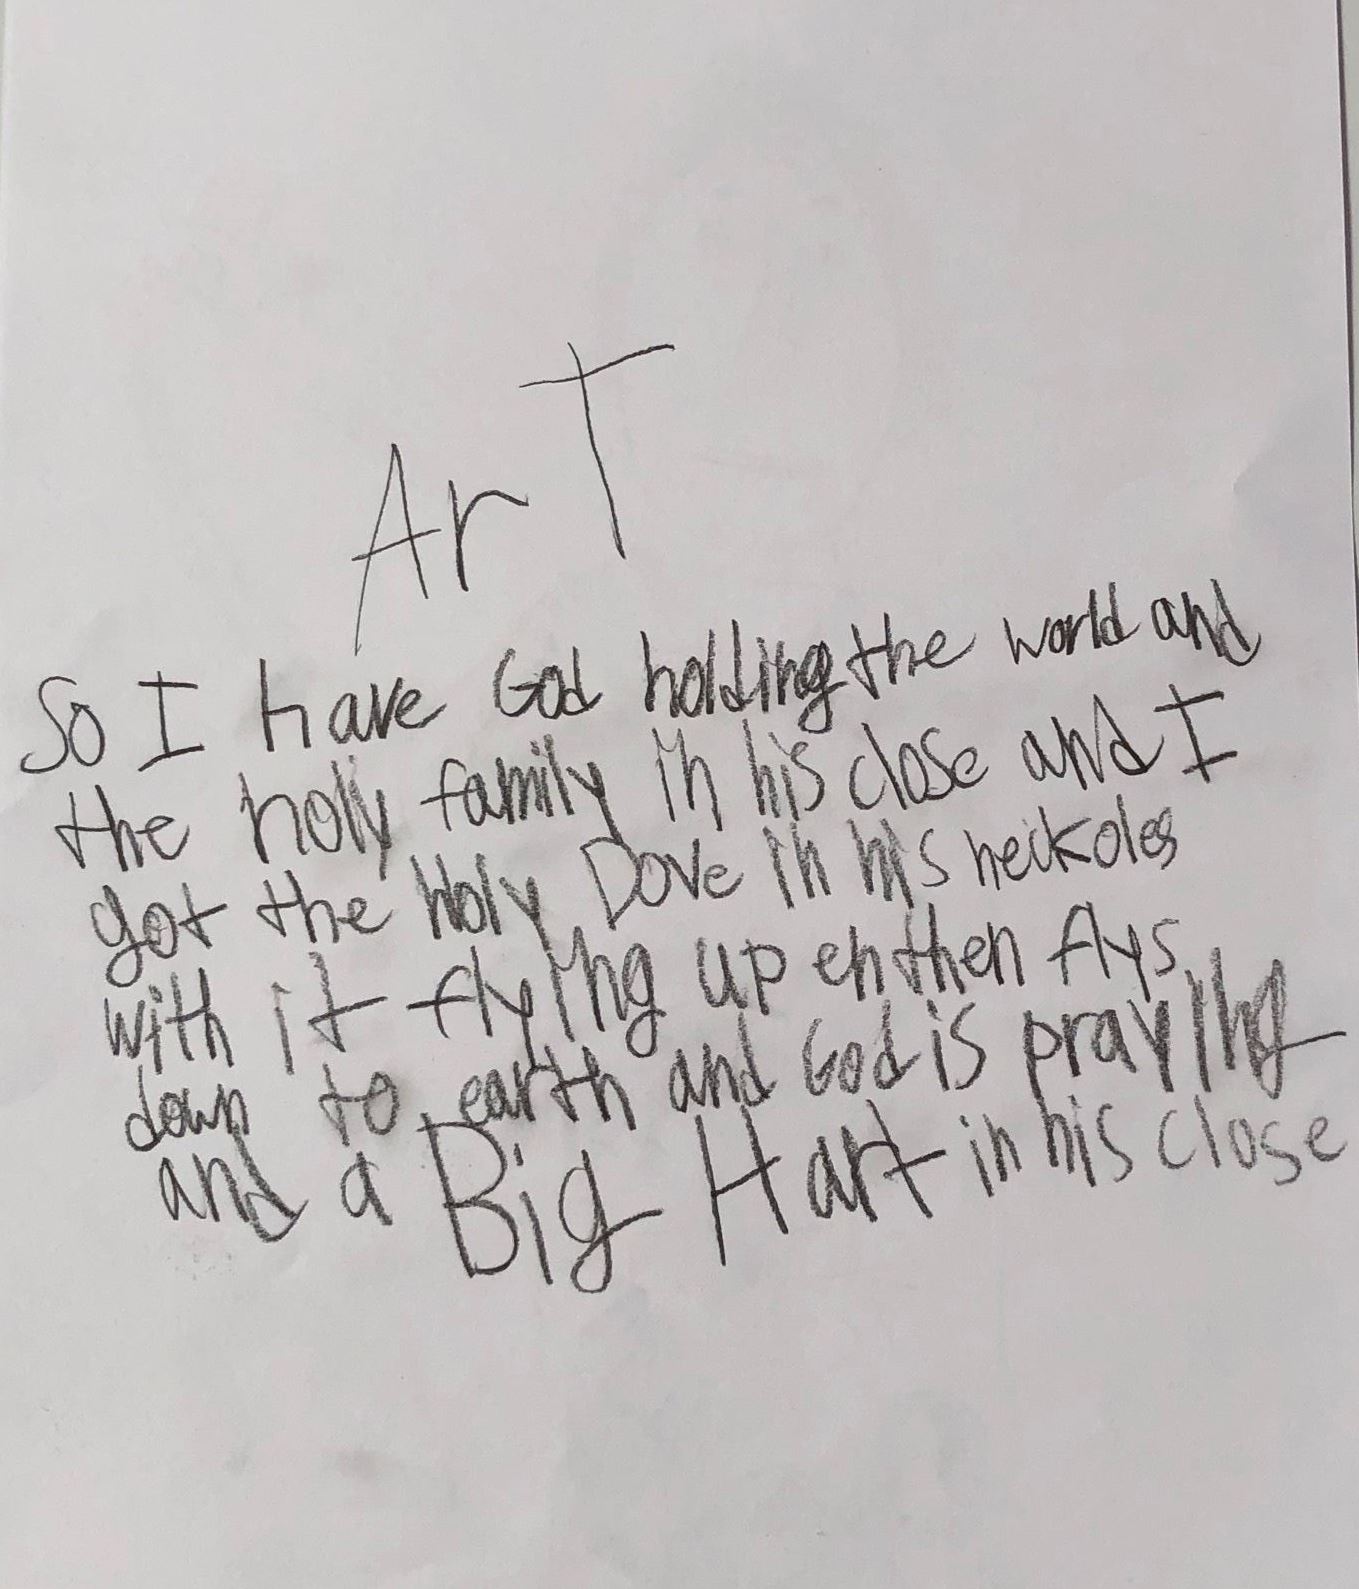 ArT
So I have God holding the world and
the holy family in his close and I
got the Holy Dove in his neckoles
with it flying up enthen flys
down to earth and God is praying
and a Big Hart in his close